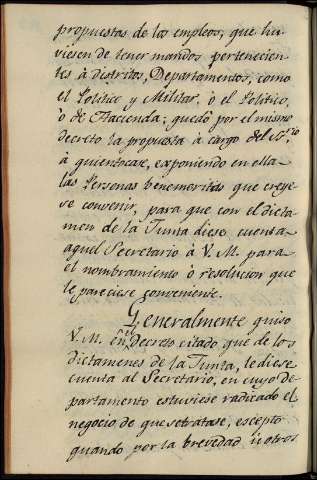 propuestas de los empleos, que hu-
viesen de tener mandos pertenecien-
tes à distritos, Departamentos, como
el Politico y Militar, ò el Politico,
ò de Hacienda; quedó por el mismo
decreto la propuesta à cargo del S.rio
à quien tocase, exponiendo en ella
las Personas benemeritas que creye-
se convenir, para que con el dicta-
men de la Junta diese cuenta
aquel Secretario à V. M. para
el nombramiento ò resolucion que
le pareciese conveniente.
Generalmente quiso
V. M. en el Decreto citado que de los
dictamenes de la Junta, le diese
cuenta el Secretario, en cuyo De-
partamento estuviese radicado el
negocio de que se tratase, escepto
quando por la brevedad ù otros